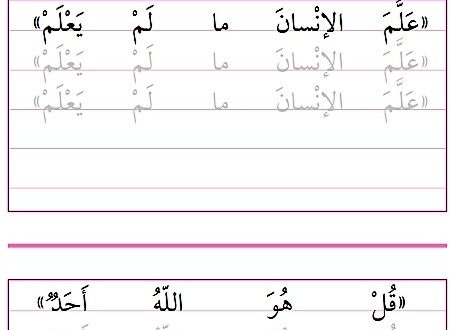 «عَلَّمَ الإنْسانَ ما لَمْ يَعْلَمْ»
«عَلَّمَ الإنْسانَ ما لَمْ يَعْلَمْ»
«عَلَّمَ الإنْسانَ ما لَمْ يَعْلَمْ»
«قُلْ هُوَ اللّهُ أَحَدٌ»